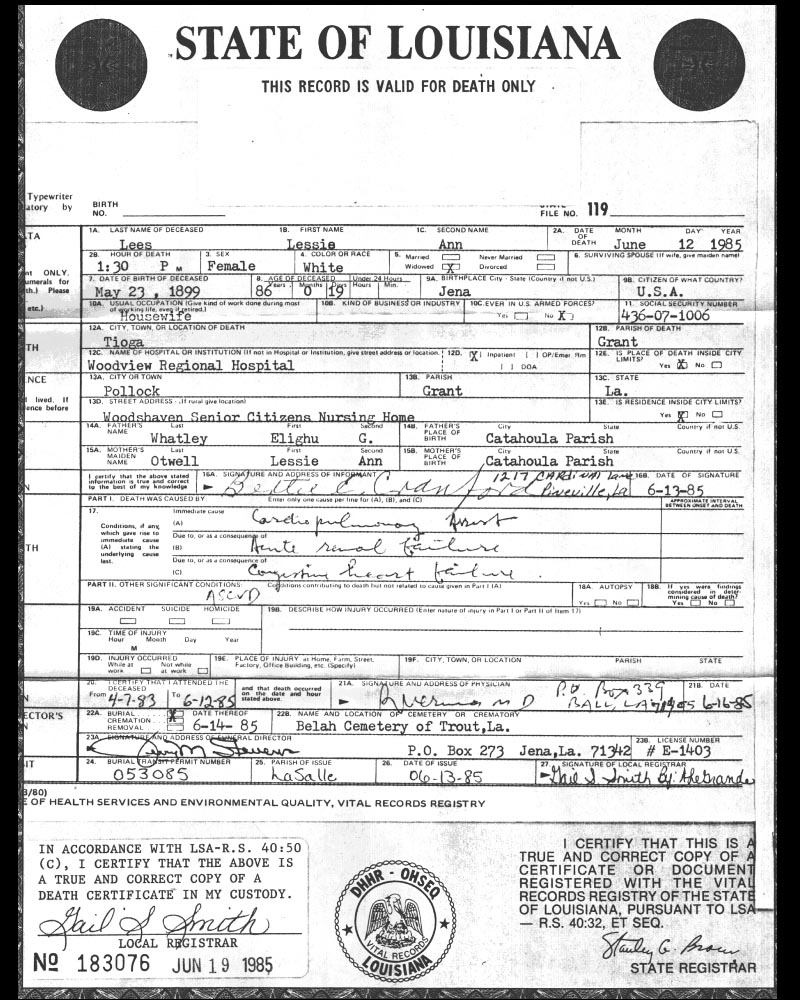 STATE OF LOUISIANA
THIS RECORD IS VALID FOR DEATH ONLY
Typewriter
atory by
BIRTH NO.
FILE NO. 119
TA
1A. LAST NAME OF DECEASED 1B. FIRST NAME 1C. SECOND NAME 2A. DATE OF DEATH MONTH DAY YEAR
Lees Lessie Ann June 12 1985
2B. HOUR OF DEATH 3. SEX 4. COLOR OR RACE 5. Married Never Married 6. SURVIVING SPOUSE (If wife, give maiden name)
1:30 P M Female White Widowed X Divorced
nt ONLY.
umerals for
th.) Please
etc.)
7. DATE OF BIRTH OF DECEASED 8. AGE OF DECEASED Years Months Days Under 24 Hours Hours Min. 9A. BIRTHPLACE City - State (Country if not U.S.) 9B. CITIZEN OF WHAT COUNTRY?
May 23, 1899 86 0 19 Jena U.S.A.
10A. USUAL OCCUPATION (Give kind of work done during most of working life, even if retired.) 10B. KIND OF BUSINESS OR INDUSTRY 10C. EVER IN U.S. ARMED FORCES? 11. SOCIAL SECURITY NUMBER
Housewife Yes No X 436-07-1006
12A. CITY, TOWN, OR LOCATION OF DEATH 12B. PARISH OF DEATH
TH
Tioga Grant
12C. NAME OF HOSPITAL OR INSTITUTION (If not in Hospital or Institution, give street address or location.) 12D. [X] Inpatient [ ] OP/Emer. Rm [ ] DOA 12E. IS PLACE OF DEATH INSIDE CITY LIMITS?
Woodview Regional Hospital Yes X No
NCE
lived. If
ence before
13A. CITY OR TOWN 13B. PARISH 13C. STATE
Pollock Grant La.
13D. STREET ADDRESS - (If rural give location) 13E. IS RESIDENCE INSIDE CITY LIMITS?
Woodshaven Senior Citizens Nursing Home Yes X No
14A. FATHER'S NAME Last First Second 14B. FATHER'S PLACE OF BIRTH City State Country if not U.S.
Whatley Elighu G. Catahoula Parish
15A. MOTHER'S MAIDEN NAME Last First Second 15B. MOTHER'S PLACE OF BIRTH City State Country if not U.S.
Otwell Lessie Ann Catahoula Parish
I certify that the above stated information is true and correct to the best of my knowledge 16A. SIGNATURE AND ADDRESS OF INFORMANT 1217 Cardinal Lane 16B. DATE OF SIGNATURE
Bettie E. Cranford Pineville, La 6-13-85
PART I. DEATH WAS CAUSED BY: Enter only one cause per line for (A), (B), and (C) APPROXIMATE INTERVAL BETWEEN ONSET AND DEATH
17. Immediate cause
Conditions, if any which gave rise to immediate cause (A) stating the underlying cause last.
(A) Cardiopulmonary Arrest
Due to, or as a consequence of
TH
(B) Acute renal failure
Due to, or as a consequence of
(C) Congestive heart failure
PART II. OTHER SIGNIFICANT CONDITIONS: Conditions contributing to death but not related to cause given in Part I (A) 18A. AUTOPSY 18B. If yes were findings considered in determining cause of death?
ASCVD Yes No Yes No
19A. ACCIDENT SUICIDE HOMICIDE 19B. DESCRIBE HOW INJURY OCCURRED (Enter nature of injury in Part I or Part II of Item 17)
19C. TIME OF INJURY
Hour Month Day Year
M
19D. INJURY OCCURRED While at work Not while at work 19E. PLACE OF INJURY at Home, Farm, Street, Factory, Office Building, etc. (Specify) 19F. CITY, TOWN, OR LOCATION PARISH STATE
20. I CERTIFY THAT I ATTENDED THE DECEASED and that death occurred on the date and hour stated above. 21A. SIGNATURE AND ADDRESS OF PHYSICIAN 21B. DATE
From 4-7-83 To 6-12-85 M D P.O. Box 339 BALL, LA 6-16-85
ECTOR'S
22A. BURIAL X CREMATION REMOVAL DATE THEREOF 22B. NAME AND LOCATION OF CEMETERY OR CREMATORY
6-14-85 Belah Cemetery of Trout, La.
23A. SIGNATURE AND ADDRESS OF FUNERAL DIRECTOR 23B. LICENSE NUMBER
Stevens P.O. Box 273 Jena, La. 71342 # E-1403
IT
24. BURIAL TRANSIT PERMIT NUMBER 25. PARISH OF ISSUE 26. DATE OF ISSUE 27. SIGNATURE OF LOCAL REGISTRAR
053085 LaSalle 06-13-85 Gail S. Smith By:
3/80)
E OF HEALTH SERVICES AND ENVIRONMENTAL QUALITY, VITAL RECORDS REGISTRY
IN ACCORDANCE WITH LSA-R.S. 40:50
(C), I CERTIFY THAT THE ABOVE IS
A TRUE AND CORRECT COPY OF A
DEATH CERTIFICATE IN MY CUSTODY.
Gail S Smith
LOCAL REGISTRAR
No 183076 JUN 19 1985
DHHR - OHSEQ
VITAL RECORDS
LOUISIANA
I CERTIFY THAT THIS IS A
TRUE AND CORRECT COPY OF A
CERTIFICATE OR DOCUMENT
REGISTERED WITH THE VITAL
RECORDS REGISTRY OF THE STATE
OF LOUISIANA, PURSUANT TO LSA
— R.S. 40:32, ET SEQ.
Stanley G. Brown
STATE REGISTRAR